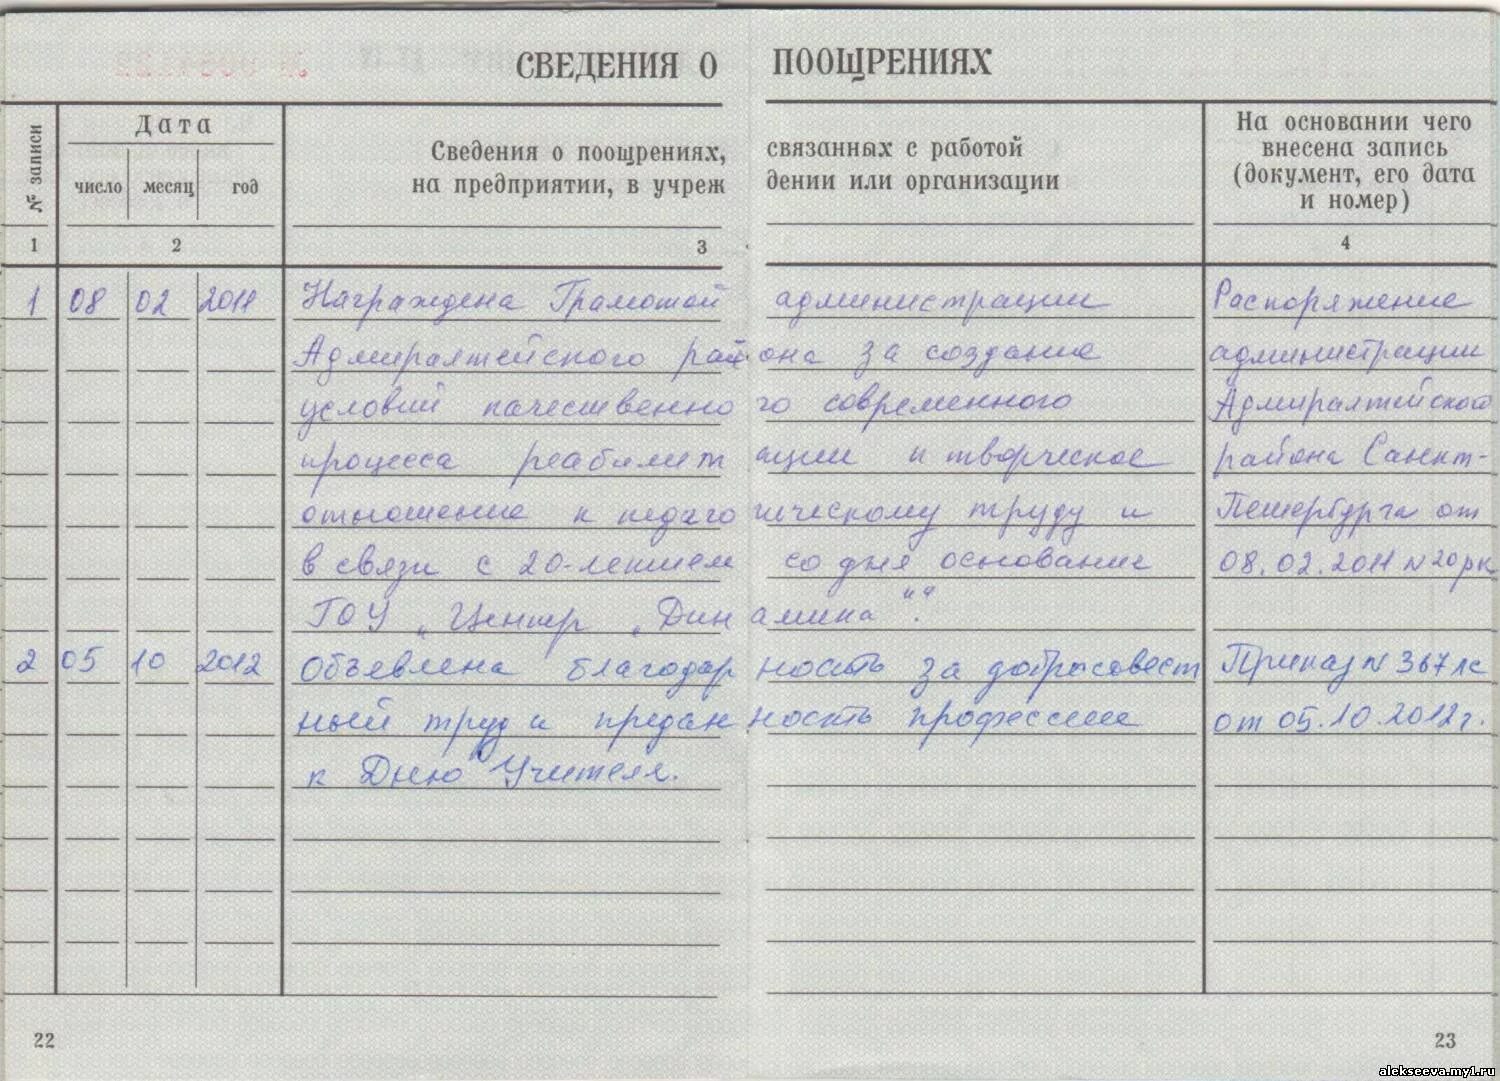 СВЕДЕНИЯ О ПООЩРЕНИЯХ
№ записи
Дата
число месяц год
Сведения о поощрениях, связанных с работой
на предприятии, в учреждении или организации
На основании чего
внесена запись
(документ, его дата
и номер)
1 2 3 4
1 08 02 2011 Награждена Грамотой администрации Распоряжение
Адмиралтейского района за создание администрации
условий качественного современного Адмиралтейского
процесса реабилитации и творческое района Санкт-
отношение к педагогическому труду и Петербурга от
в связи с 20-летием со дня основания 08.02.2011 N20рк
ГОУ „Центр „Динамика"".
2 05 10 2012 Объявлена благодарность за добросовест Приказ N 367лс
ный труд и преданность профессии от 05.10.2012г.
к Дню Учителя.
22
23
alekseeva.my1.ru